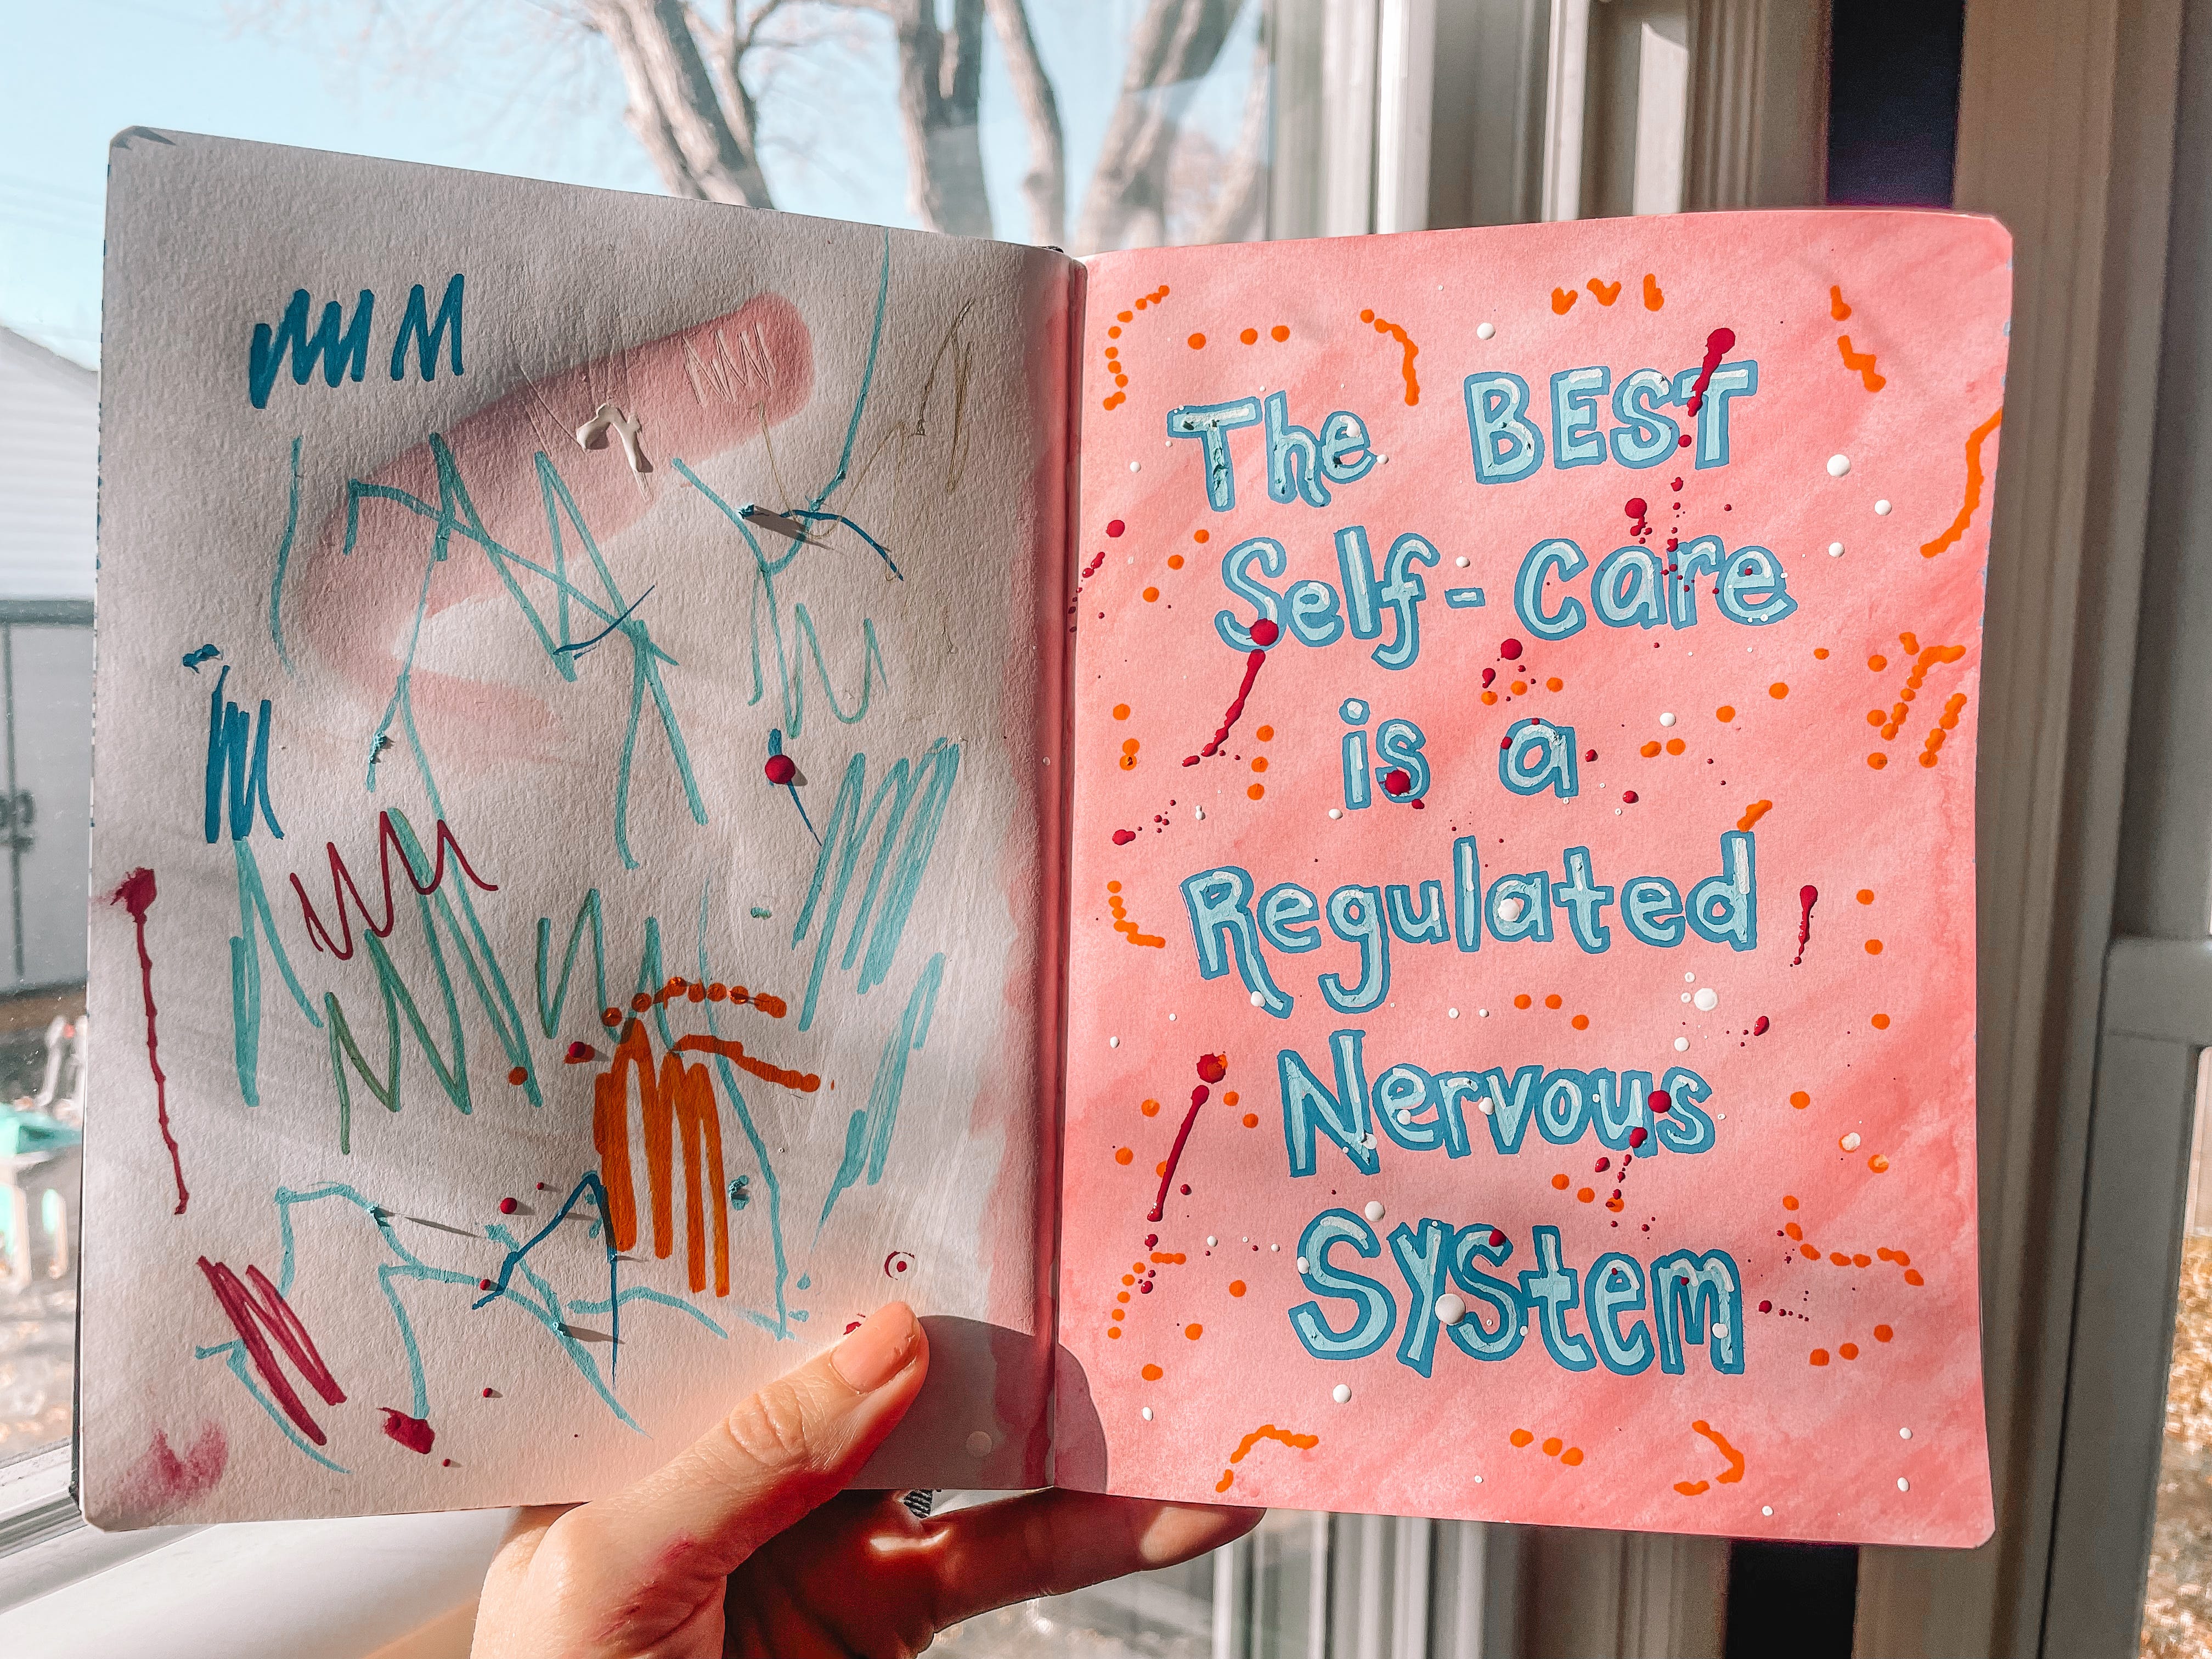 The BEST
Self-Care
is a
Regulated
Nervous
System